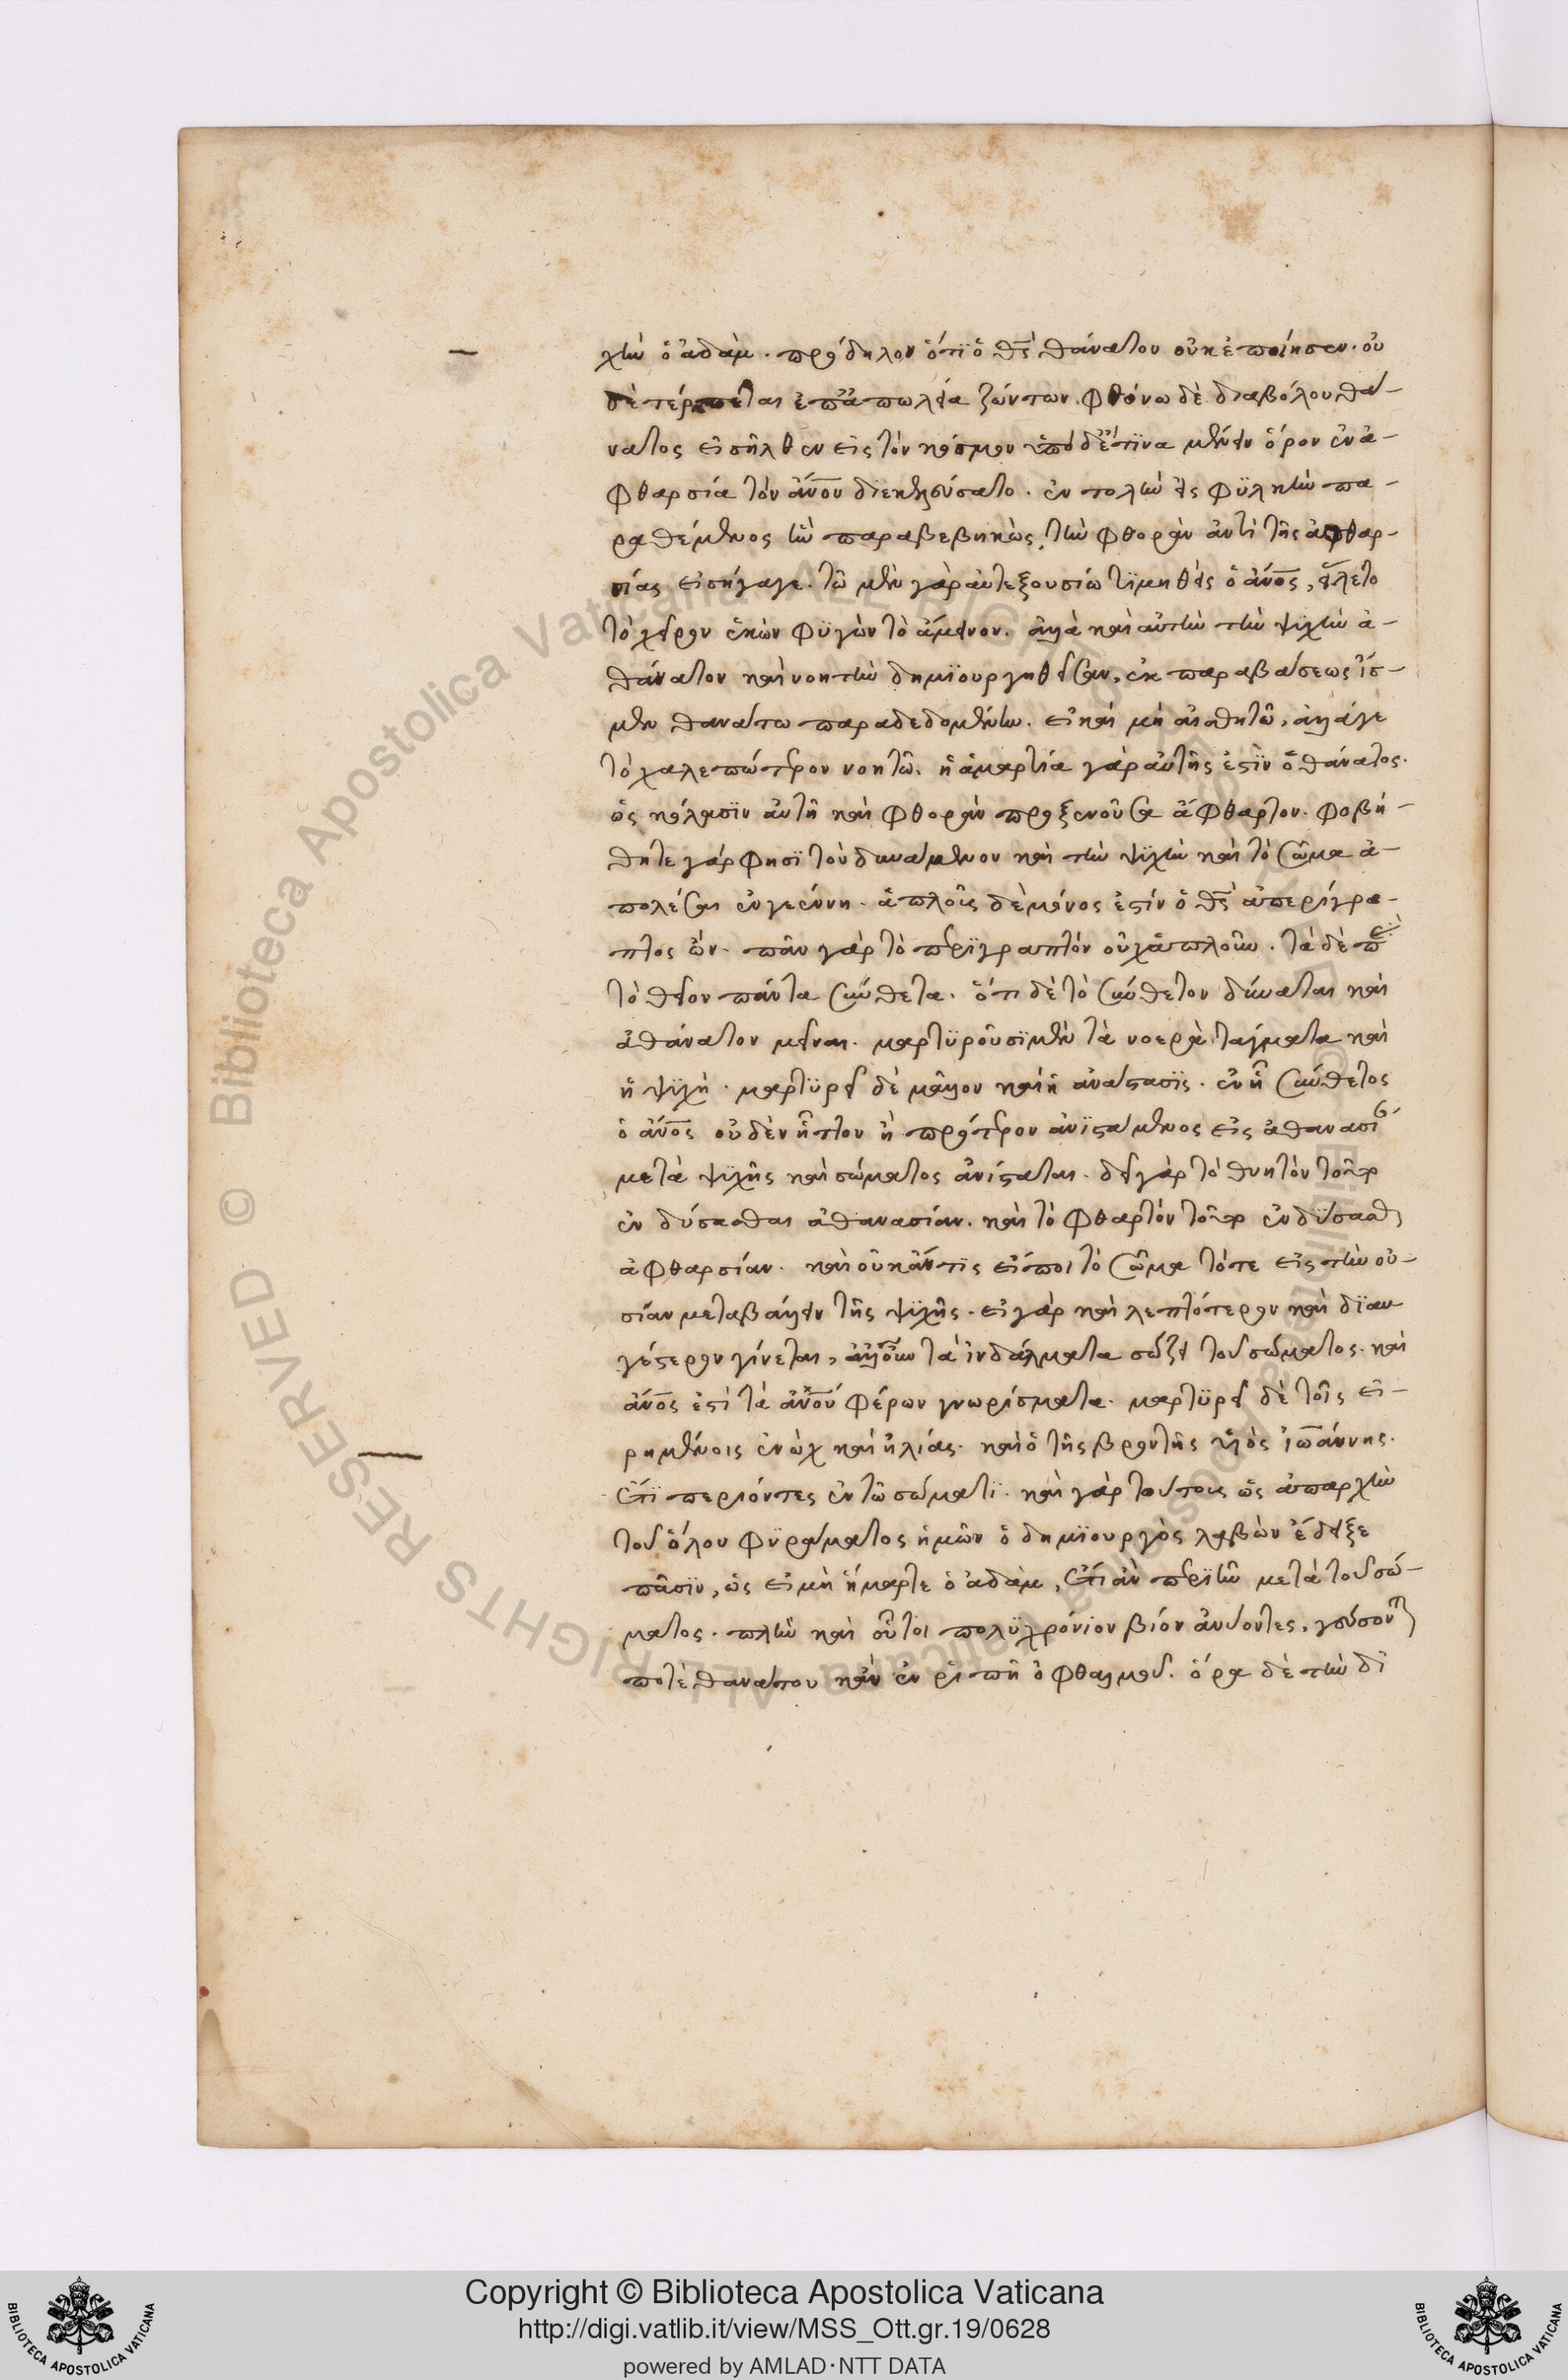 χὴν ὁ ἀδὰμ. πρόδηλον ὅτϊ ὁ θς θάνατον οὐκ ἐποίησεν. οὐ
δὲ τέρπεται ἐπ' ἀπωλεία ζώντων. φθόνω δὲ διαβόλου θά-
νατος εἰσῆλθεν εἰς τὸν κόσμον
φθαρσία τὸν ἀνον ἐντολὴν εἰς φϋλακὴν πα-
ραθέμενος ἣν παραβεβηκὼς, τὴν φθορὰν ἀντὶ τῆς ἀφθαρ-
σίας εἰσήγαγε. τῶ μὲν γὰρ αὐτεξουσίω τϊμηθεὶς ὁ ἀνος, εἵλετο
τὸ χεῖρον ἑκὼν φϋγὼν τὸ ἄμεινον. ἀλλὰ καὶ αὐτὴν τὴν ψϋχὴν ἀ-
θάνατον καὶ νοητὴν δημϊουργηθεῖσαν, ἐκ παραβάσεως ἴσ-
μεν θανάτω παραδεδομένην. εἰ καὶ μὴ αἰσθητῶ, ἀλλά γε
τὸ χαλεπώτερον νοητῶ. ἡ ἁμαρτία γὰρ αὐτῆς ἐστϊν ὁ θάνατος.
ὡς κόλασϊν αὐτῆ καὶ φθορὰν προξενοῦσα ἄφθαρτον. φοβή-
θητε γάρ φησϊ τὸν δυνάμενον καὶ τὴν ψϋχὴν καὶ τὸ σῶμα ἀ-
πολέσαι ἐν γεέννη. ἁπλοῦς δὲ μόνος ἐστίν ὁ θς ἀπερίγρα-
πτος ὤν. πᾶν γὰρ τὸ περϊγραπτὸν οὐχ ἁπλοῦν. τὰ δὲ π
τὸ θεῖον πάντα σύνθετα. ὅτι δὲ τὸ σύνθετον δύναται καὶ
ἀθάνατον μεῖναι. μαρτϋροῦσϊ μὲν τὰ νοερὰ τάγματα καὶ
ἡ ψϋχή. μαρτϋρεῖ δὲ μᾶλλον καὶ ἡ ἀνάστασϊς. ἐν ἧ σύνθετος
ὁ ἀνος οὐδὲν ἧττον ἢ πρότερον ἀνϊστάμενος εἰς ἀθανασί
μετὰ ψϋχῆς καὶ σώματος ἀνίσταται. δεῖ γὰρ τὸ θνητὸν τοῦτο
ἐνδύσασθαι ἀθανασίαν. καὶ τὸ φθαρτὸν τοῦτο ἐνδύσασθ
ἀφθαρσίαν. καὶ οὐκ ἄν τϊς εἴποι τὸ σῶμα τότε εἰς τὴν οὐ-
σίαν μεταβάλλειν τῆς ψϋχῆς. εἰ γὰρ καὶ λεπτότερον καὶ δϊαυ
γέστερον γίνεται, ἀλλ' οὖν τὰ ἰνδάλματα σώζει τοῦ σώματος. καὶ
ἀνος ἐστὶ τὰ ἀνου φέρων γνωρίσματα. μαρτϋρεῖ δὲ τοῖς εἰ-
ρημένοις ἐνὼχ καὶ ἠλίας. καὶ ὁ τῆς βροντῆς υἱὸς ἰωάννης.
ἔτϊ περιόντες ἐν τῶ σώματϊ. καὶ γὰρ τούτους ὡς ἀπαρχὴν
τοῦ ὅλου φϋράματος ἡμῶν ὁ δημϊουργὸς λαβὼν ἔδειξε
πᾶσϊν, ὡς εἰ μὴ ἥμαρτε ὁ ἀδὰμ, ἔτϊ ἂν περϊῆν μετὰ τοῦ σώ-
ματος. πλὴν καὶ οὗτοι πολϋχρόνιον βίον ἀνύοντες, γεύσοντ
ποτὲ θανάτου κἂν ἐν ῥιπῆ ὀφθαλμοῦ. ὅρα δὲ τὴν δϊ